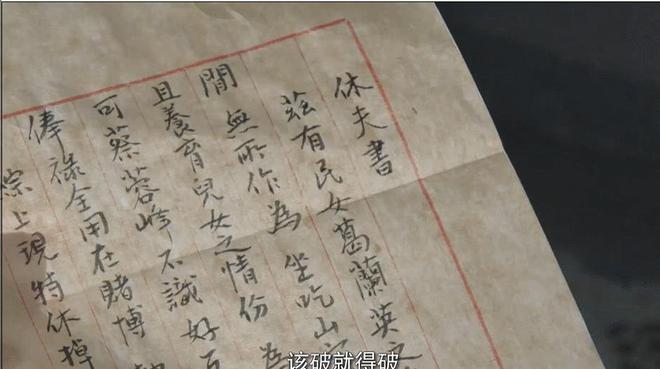 休夫書
茲有民女葛蘭英
間無所作為坐吃山
且養育兒女之情份為
可蔡蓉峰不識好
俸祿全用在賭博
綜上現特休掉
该破就得破